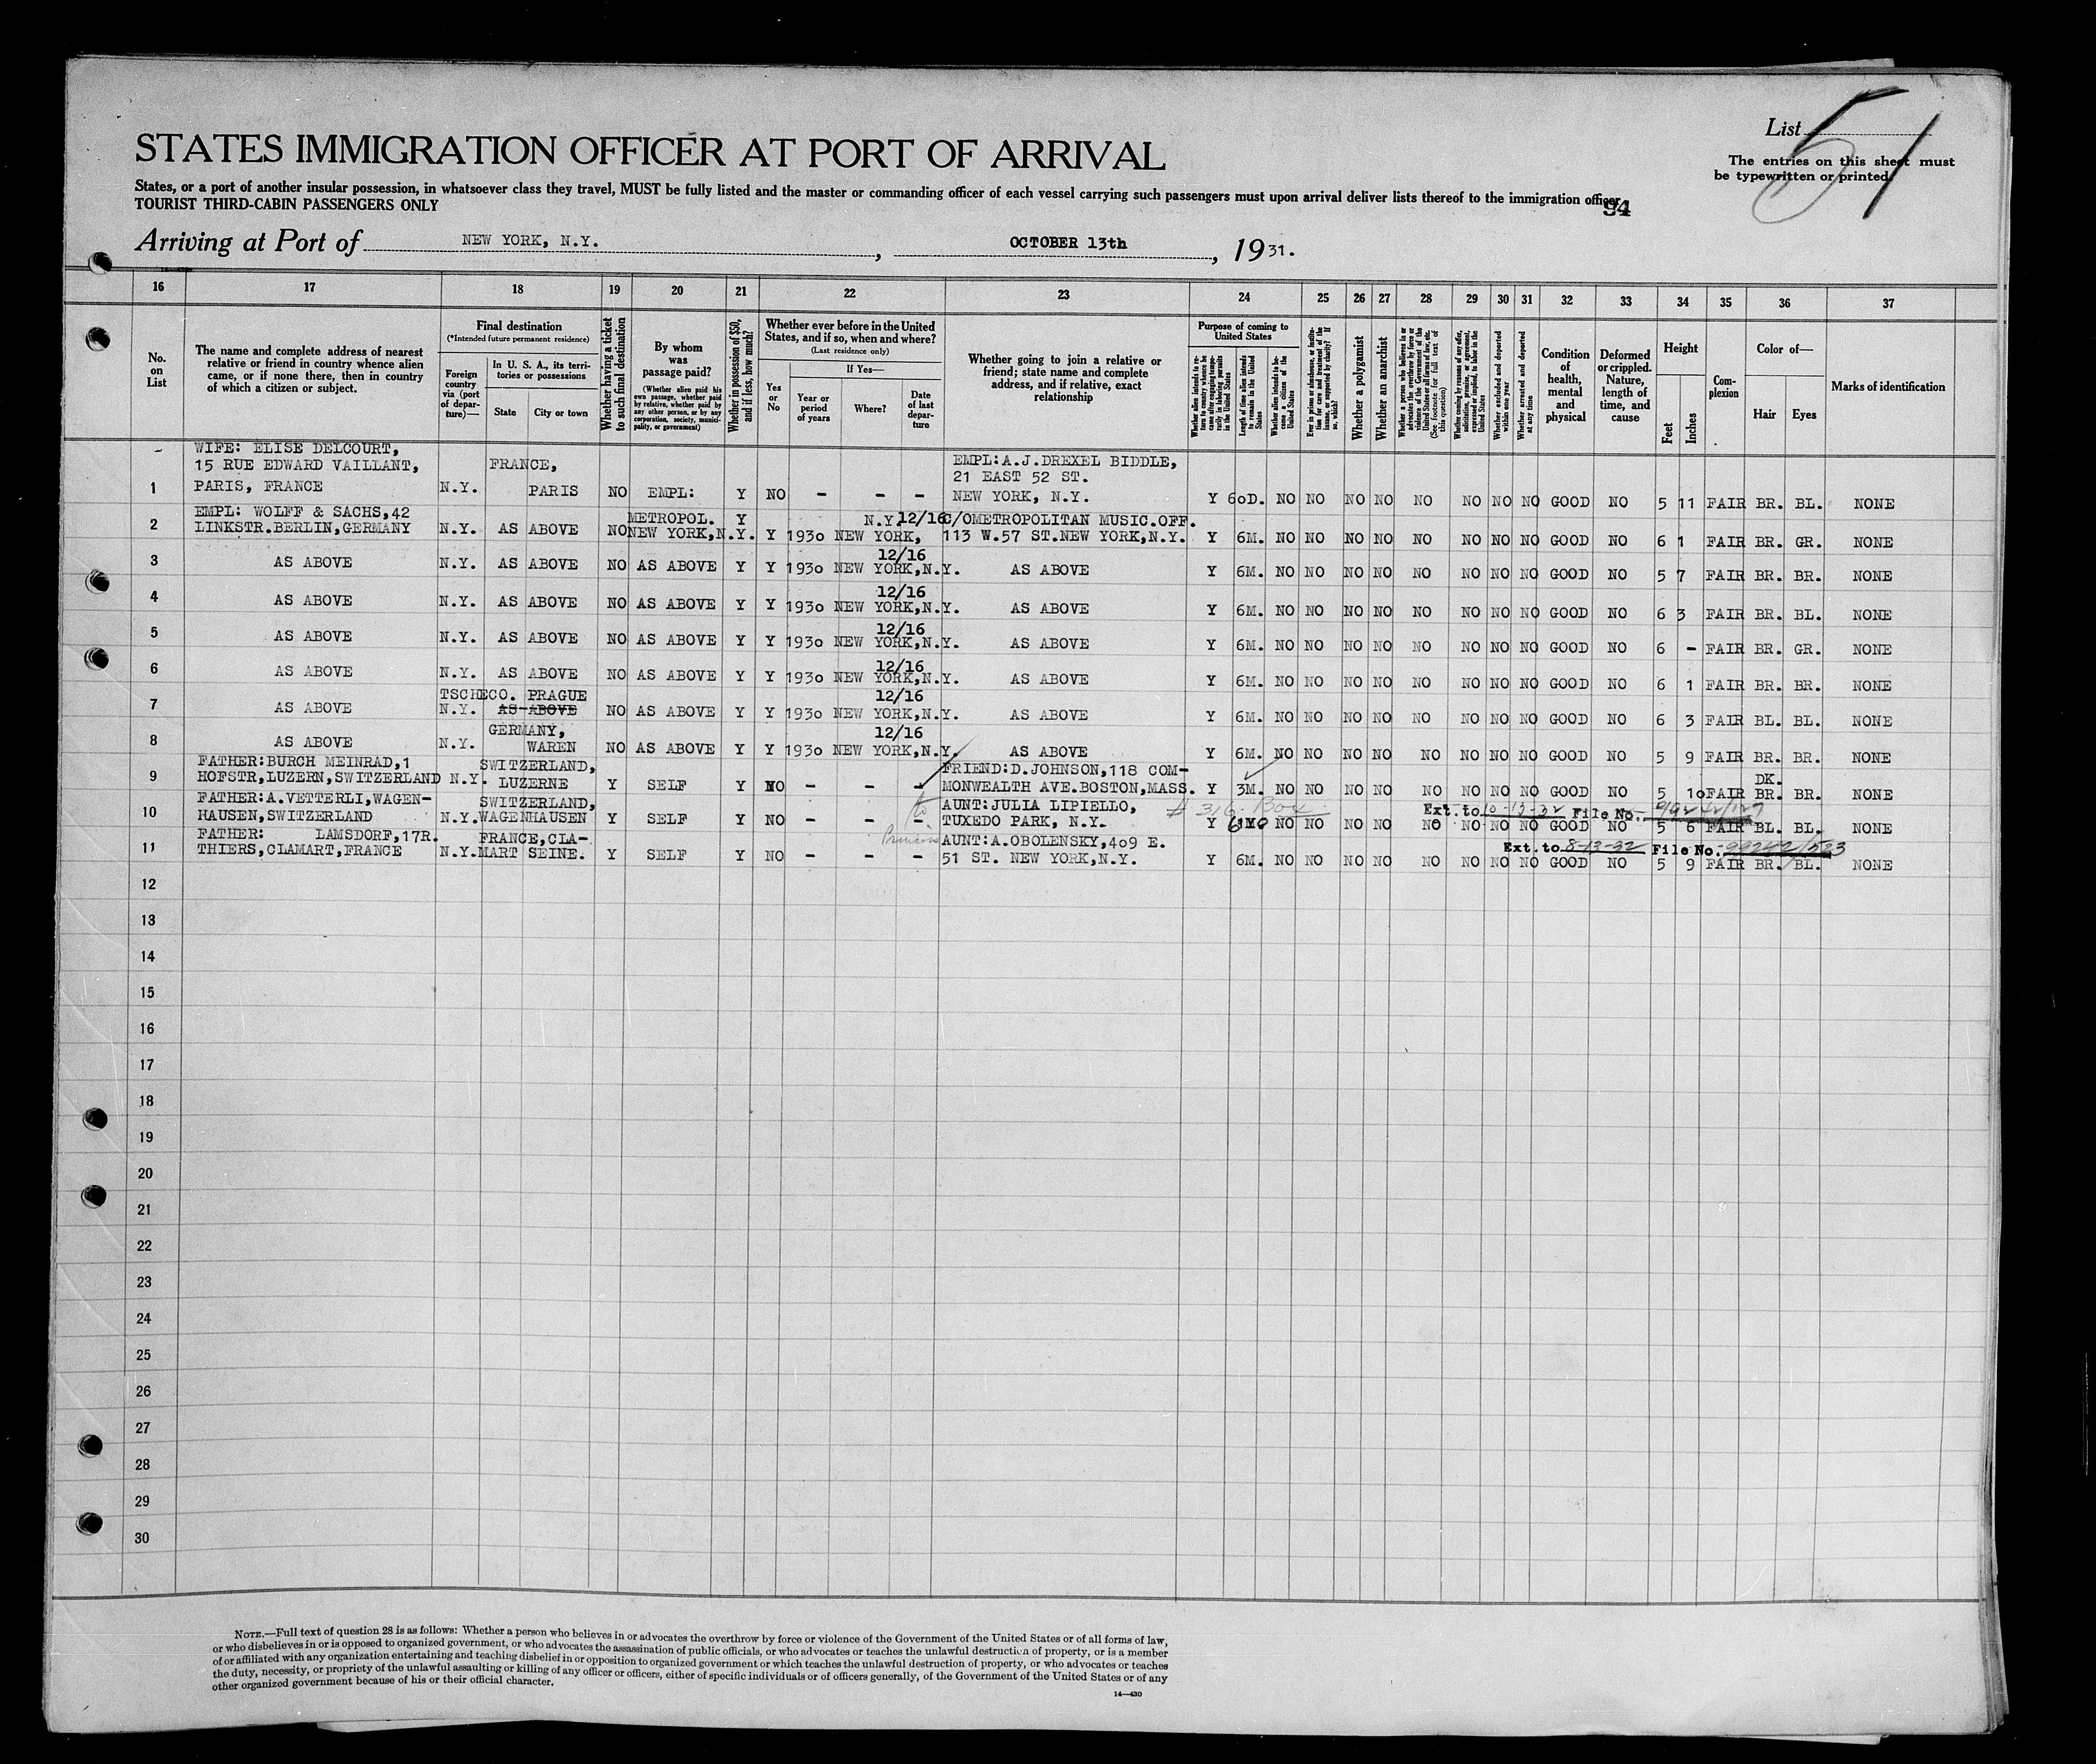 List 51
STATES IMMIGRATION OFFICER AT PORT OF ARRIVAL
The entries on this sheet must
be typewritten or printed.
States, or a port of another insular possession, in whatsoever class they travel, MUST be fully listed and the master or commanding officer of each vessel carrying such passengers must upon arrival deliver lists thereof to the immigration officer
TOURIST THIRD-CABIN PASSENGERS ONLY
94
Arriving at Port of NEW YORK, N.Y. , OCTOBER 13th , 1931.
16 17 18 19 20 21 22 23 24 25 26 27 28 29 30 31 32 33 34 35 36 37
No. on List
The name and complete address of nearest relative or friend in country whence alien came, or if none there, then in country of which a citizen or subject.
Final destination
(*Intended future permanent residence)
Foreign country via (port of departure)—
In U. S. A., its territories or possessions
State
City or town
Whether having a ticket to such final destination
By whom was passage paid?
(Whether alien paid his own passage, whether paid by relative, whether paid by any other person, or by any corporation, society, municipality, or government)
Whether in possession of $50, and if less, how much?
Whether ever before in the United States, and if so, when and where?
(Last residence only)
Yes or No
If Yes—
Year or period of years
Where?
Date of last departure
Whether going to join a relative or friend; state name and complete address, and if relative, exact relationship
Purpose of coming to United States
Whether alien intends to return to country whence he came after engaging temporarily in laboring pursuits in the United States
Length of time alien intends to remain in the United States
Whether alien intends to become a citizen of the United States
Ever in prison or almshouse, or institution for care and treatment of the insane, or supported by charity? If so, which?
Whether a polygamist
Whether an anarchist
Whether a person who believes in or advocates the overthrow by force or violence of the Government of the United States or all forms of law, etc. (See footnote for full text of this question)
Whether coming by reason of any offer, solicitation, promise, or agreement, expressed or implied, to labor in the United States
Whether excluded and deported within one year
Whether arrested and deported at any time
Condition of health, mental and physical
Deformed or crippled. Nature, length of time, and cause
Height
Feet
Inches
Complexion
Color of—
Hair
Eyes
Marks of identification
WIFE: ELISE DELCOURT,
15 RUE EDWARD VAILLANT, FRANCE, EMPL:A.J.DREXEL BIDDLE,
21 EAST 52 ST.
1 PARIS, FRANCE N.Y. PARIS NO EMPL: Y NO - - - NEW YORK, N.Y. Y 60D. NO NO NO NO NO NO NO NO GOOD NO 5 11 FAIR BR. BL. NONE
EMPL: WOLFF & SACHS,42 METROPOL. Y N.Y. 12/16 C/OMETROPOLITAN MUSIC.OFF.
2 LINKSTR.BERLIN,GERMANY N.Y. AS ABOVE NO NEW YORK,N.Y. Y 1930 NEW YORK, 113 W.57 ST.NEW YORK,N.Y. Y 6M. NO NO NO NO NO NO NO NO GOOD NO 6 1 FAIR BR. GR. NONE
12/16
3 AS ABOVE N.Y. AS ABOVE NO AS ABOVE Y Y 1930 NEW YORK,N.Y. AS ABOVE Y 6M. NO NO NO NO NO NO NO NO GOOD NO 5 7 FAIR BR. BR. NONE
12/16
4 AS ABOVE N.Y. AS ABOVE NO AS ABOVE Y Y 1930 NEW YORK,N.Y. AS ABOVE Y 6M. NO NO NO NO NO NO NO NO GOOD NO 6 3 FAIR BR. BL. NONE
12/16
5 AS ABOVE N.Y. AS ABOVE NO AS ABOVE Y Y 1930 NEW YORK,N.Y. AS ABOVE Y 6M. NO NO NO NO NO NO NO NO GOOD NO 6 - FAIR BR. GR. NONE
12/16
6 AS ABOVE N.Y. AS ABOVE NO AS ABOVE Y Y 1930 NEW YORK,N.Y. AS ABOVE Y 6M. NO NO NO NO NO NO NO NO GOOD NO 6 1 FAIR BR. BR. NONE
TSCHECO. PRAGUE 12/16
7 AS ABOVE N.Y. AS ABOVE NO AS ABOVE Y Y 1930 NEW YORK,N.Y. AS ABOVE Y 6M. NO NO NO NO NO NO NO NO GOOD NO 6 3 FAIR BL. BL. NONE
GERMANY, 12/16
8 AS ABOVE N.Y. WAREN NO AS ABOVE Y Y 1930 NEW YORK,N.Y. AS ABOVE Y 6M. NO NO NO NO NO NO NO NO GOOD NO 5 9 FAIR BR. BR. NONE
FATHER:BURCH MEINRAD,1 SWITZERLAND, FRIEND:D.JOHNSON,118 COM- DK.
9 HOFSTR,LUZERN,SWITZERLAND N.Y. LUZERNE Y SELF Y NO - - - MONWEALTH AVE.BOSTON,MASS. Y 3M. NO NO NO NO NO NO NO NO GOOD NO 5 10 FAIR BR. BR. NONE
FATHER:A.VETTERLI,WAGEN- SWITZERLAND, to AUNT:JULIA LIPIELLO, Ext. to 10-13-32 File No.
10 HAUSEN,SWITZERLAND N.Y. WAGENHAUSEN Y SELF Y NO - - - TUXEDO PARK, N.Y. Y NO NO NO NO NO NO NO NO GOOD NO 5 6 FAIR BL. BL. NONE
FATHER: LAMSDORF,17R. FRANCE,CLA- Princess AUNT:A.OBOLENSKY,409 E. Ext. to 8-13-32 File No. 99242/523
11 THIERS,CLAMART,FRANCE N.Y. MART SEINE. Y SELF Y NO - - - 51 ST. NEW YORK,N.Y. Y 6M. NO NO NO NO NO NO NO NO GOOD NO 5 9 FAIR BR. BL. NONE
12
13
14
15
16
17
18
19
20
21
22
23
24
25
26
27
28
29
30
NOTE.—Full text of question 28 is as follows: Whether a person who believes in or advocates the overthrow by force or violence of the Government of the United States or of all forms of law,
or who disbelieves in or is opposed to organized government, or who advocates the assassination of public officials, or who advocates or teaches the unlawful destruction of property, or is a member
of or affiliated with any organization entertaining and teaching disbelief in or opposition to organized government or which teaches the unlawful destruction of property, or who advocates or teaches
the duty, necessity, or propriety of the unlawful assaulting or killing of any officer or officers, either of specific individuals or of officers generally, of the Government of the United States or of any
other organized government because of his or their official character.
14—430